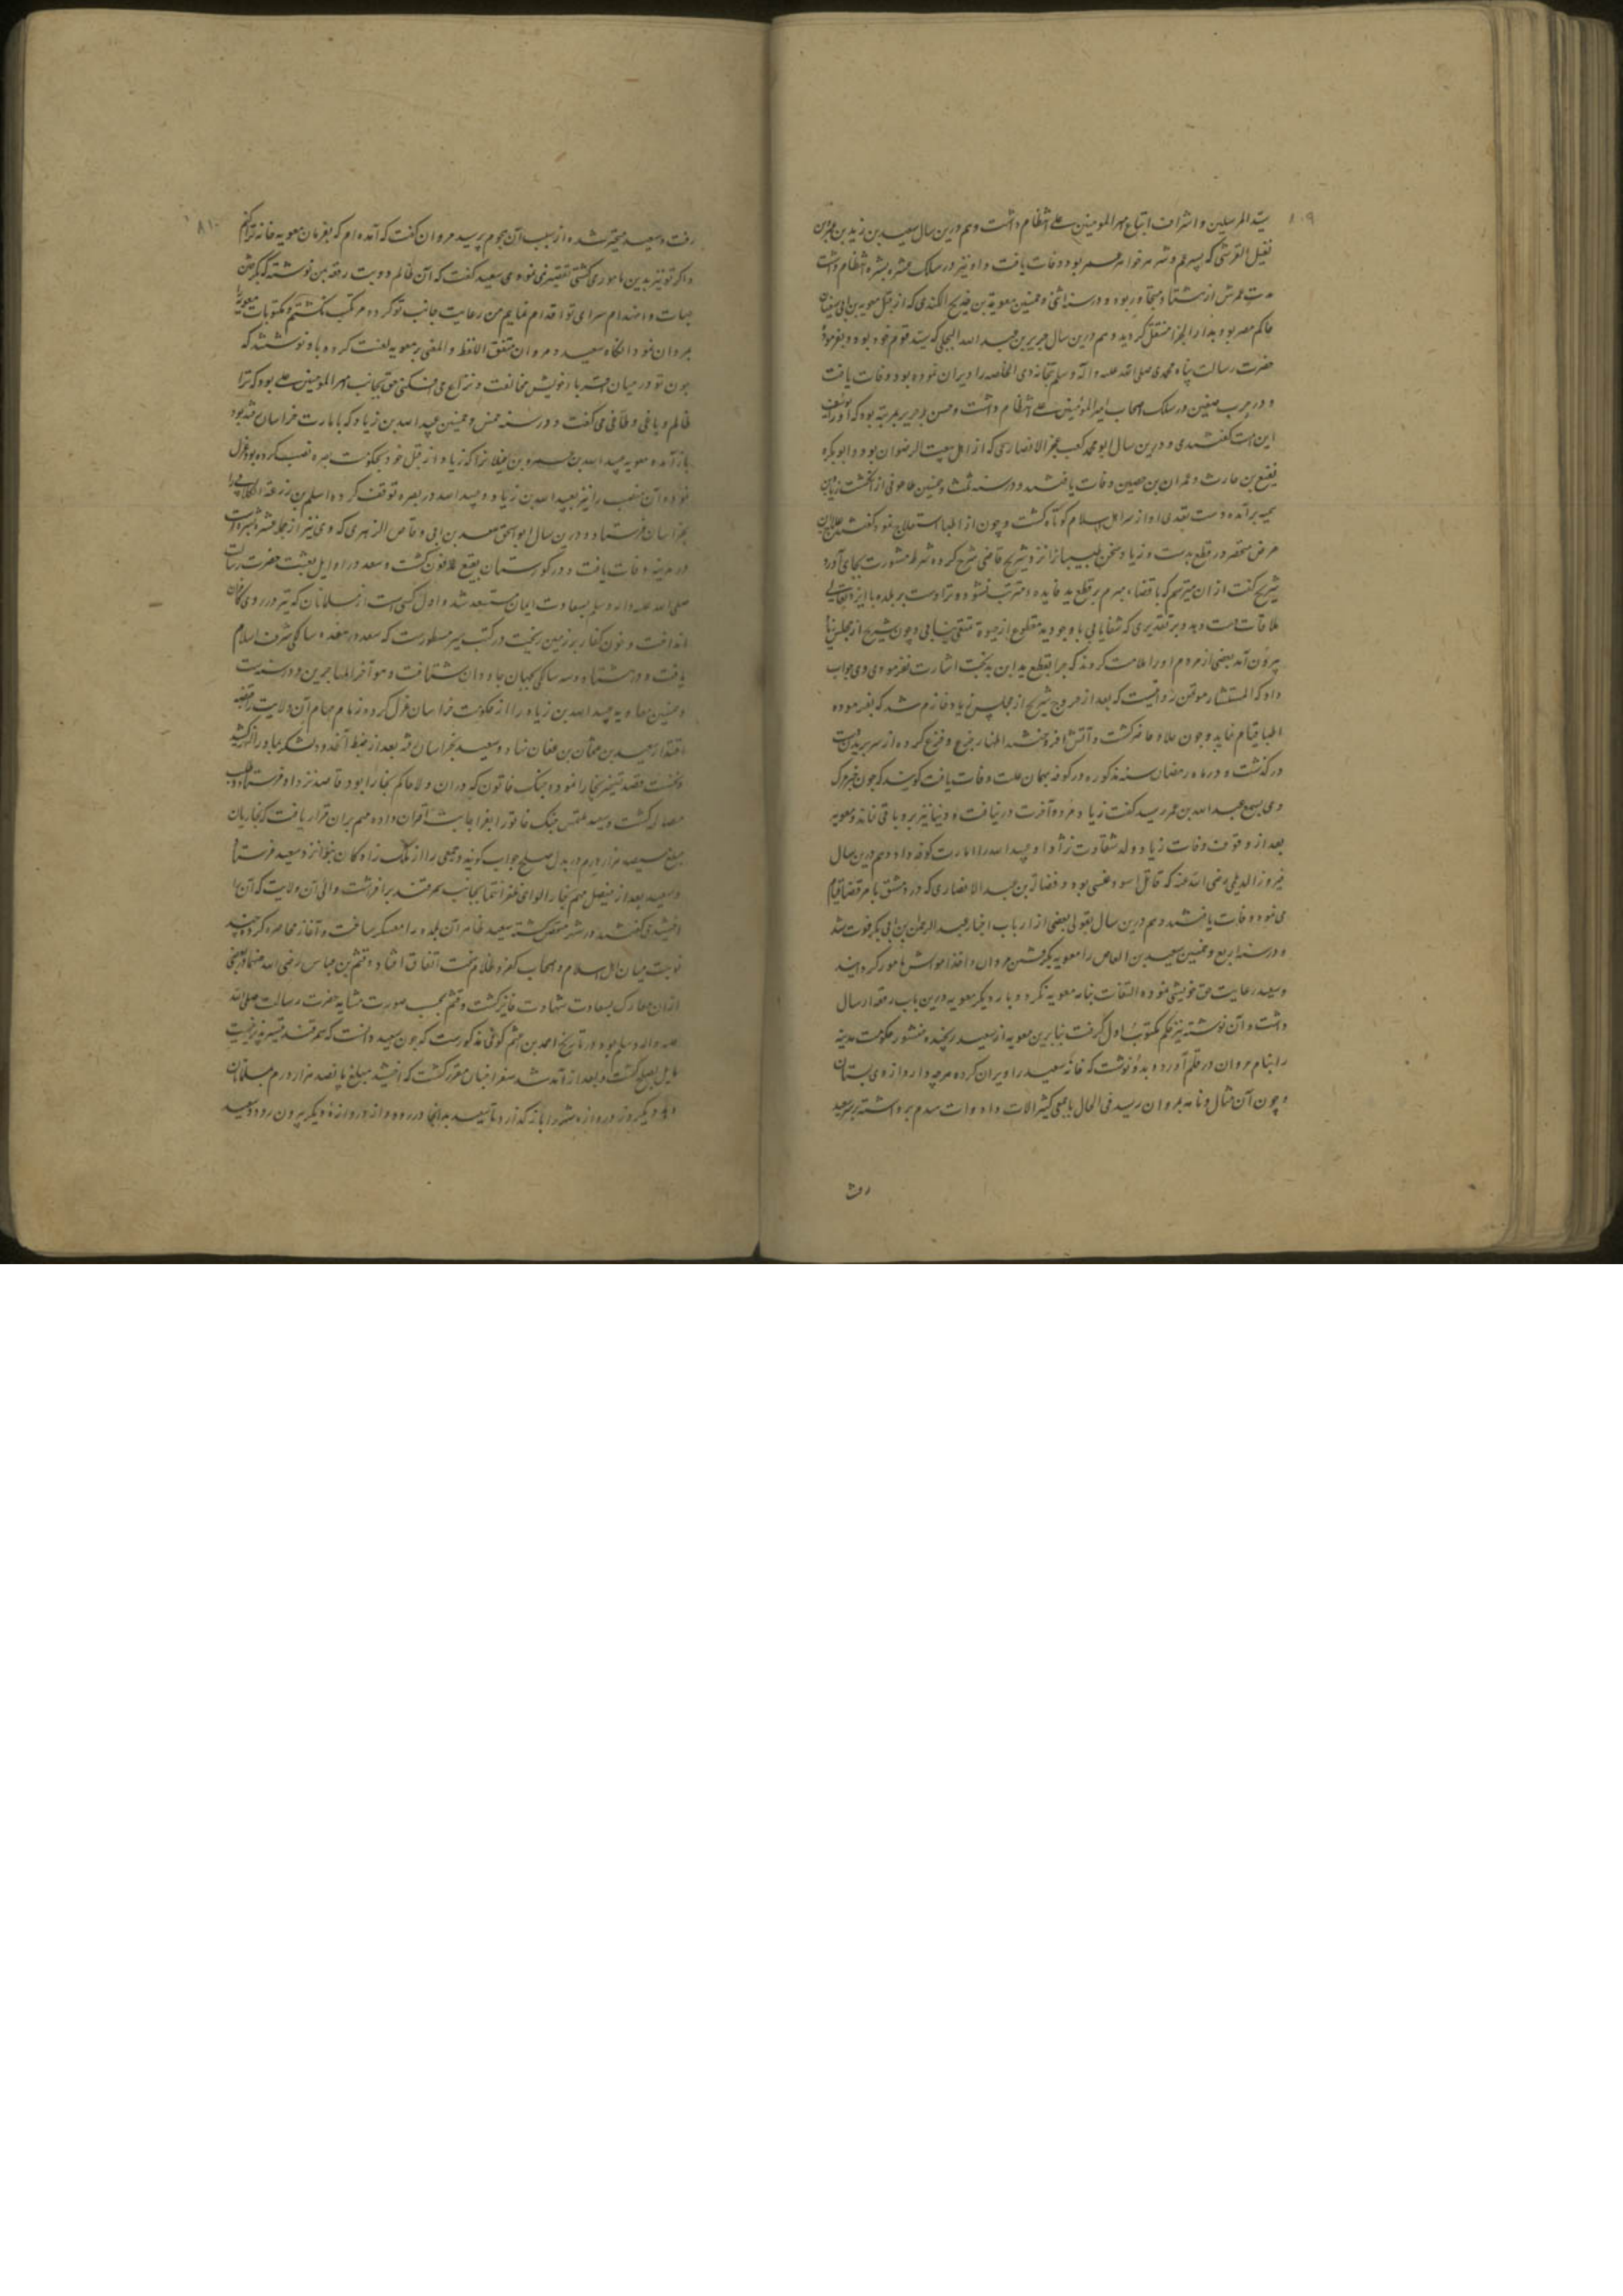 ۸۰۹
سید المرسلین و اشراف اتباع امیر المومنین علی انتظام داشت و هم درین سال سعید بن زید بن عمرو بن
نفیل القرشی که پسر عم و شوهر خواهر عمر بود وفات یافت و او نیز در سلک عشره مبشره انتظام داشت
مدت عمرش از هشتاد متجاوز بود و در سنه اثنی و خمسین معویة بن خدیج الکندی که از قبل معویه بن ابی سفیان
حاکم مصر بود بدار الجزا منتقل گردید و هم درین سال جریر بن عبد الله البجلی که سید قوم خود بود و بفرمودهٔ
حضرت رسالت پناه محمدی صلی الله علیه و آله و سلم بتخانه ذی الخلصه را ویران نموده بود وفات یافت
و در حرب صفین در سلک اصحاب امیر المؤمنین علی انتظام داشت و حسن جریر بمرتبه بود که او را یوسف
این امت گفتندی و درین سال ابو محمد کعب بن عجز الانصاری که از اهل بیعت الرضوان بود و ابو بکره
نفیع بن حارث و عمران بن حصین وفات یافتند و در سنه ثلث و خمسین طاعونی از انگشت زیاد بن
سمیه برآمده دست تعدی او از سر اهل اسلام کوتاه گشت و چون از اطبا استعلاج نمود گفتند علاج این
مرض منحصر در قطع یدست و زیاد سخن طبیبان را نزد شریح قاضی شرح کرده شرط مشورت بجای آورد
شریح گفت از آن میترسم که با قضاء مبرم بر قطع ید فایده مترتب نشود و ترا دست بریده با ایزد تعالی
ملاقات دست دهد و بر تقدیری که شفا یابی با وجود ید مقطوع از حیوة تمتعی نیابی و چون شریح از مجلس زیاد
بیرون آمد بعضی از مردم او را ملامت کردند که چرا بقطع ید این بدبخت اشارت نفرمودی وی جواب
داد که المستشار مؤتمن روایتست که بعد از خروج شریح از مجلس زیاد جازم شد که بفرموده
اطبا قیام نماید و چون جلاد حاضر گشت و آتش افروختند اظهار جزع و فزع کرده از سر بریدن دست
درگذشت و در ماه رمضان سنه مذکوره در کوفه بهمان علت وفات یافت گویند که چون خبر مرگ
وی بسمع عبد الله بن عمر رسید گفت زیاد مرد و آخرت در نیافت و دنیا نیز برو باقی نماند و معویه
بعد از وقوف وفات زیاد ولد شقاوت نژاد او عبید الله را امارت کوفه داد و هم درین سال
فیروز الدیلمی رضی الله عنه که قاتل اسود عنسی بود و فضالة بن عبید الانصاری که در دمشق بامر قضا قیام
می نمود وفات یافتند و هم درین سال بقول بعضی از ارباب اخبار عبد الرحمن بن ابی بکر فوت شد
و در سنه اربع و خمسین سعید بن العاص را معویه بگرفتن مروان و اخذ اموالش مامور گردانید
و سعید رعایت حق خویشی نموده التفات بنامه معویه نکرد و باردیگر معویه درین باب رقعه ارسال
داشت و آن نوشته نیز حکم مکتوب اول گرفت بنابرین معویه از سعید رنجیده منشور حکومت مدینه
را بنام مروان در قلم آورد و بدو نوشت که خانهٔ سعید را ویران کرده هرچه دارد از وی بستان
و چون آن مثال و نامه بمروان رسید فی الحال با جمعی کثیر الات و ادوات هدم برداشته بر سر سعید
رفت
۸۱۰
رفت و سعید متحیر شده از سبب آن هجوم پرسید مروان گفت که آمده ام که بفرمان معویه خانه ترا بکنم
و اگر تو نیز بدین مامور می گشتی تقصیر نمی نمودی سعید گفت که آن ظالم دو بت رقعه بمن نوشته که بگرفتن
جهات و انهدام سرای تو اقدام نمایم من رعایت جانب تو کرده مرتکب نگشتم و مکتوبات معویه را
بمروان نمود آنگاه سعید و مروان متفق اللفظ و المعنی بر معویه لعنت کرده باو نوشتند که
چون تو در میان اقربا و خویش مخالفت و نزاع می افکنی حق بجانب امیر المومنین علی بود که ترا
ظالم و باغی و طاغی می گفت و در سنه خمس و خمسین عبید الله بن زیاد که بامارت خراسان رفته بود
باز آمده معویه عبد الله بن عمرو بن غیلان را که زیاد از قبل خود بحکومت بصره نصب کرده بود عزل
نموده و آن منصب را نیز بعبید الله بن زیاد و عبید الله در بصره توقف کرده اسلم بن زرعه الکلابی را
بخراسان فرستاد و درین سال ابو اسحق سعد بن ابی وقاص الزهری که وی نیز از جمله عشره مبشره است
در مدینه وفات یافت و در گورستان بقیع مدفون گشت و سعد در اوایل بعثت حضرت رسالت
صلی الله علیه و اله و سلم بسعادت ایمان مستسعد شد و اول کسی است از مسلمانان که تیر در روی کافران
انداخت و خون کفار بر زمین ریخت در کتب سیر مسطورست که سعد در هفده سالگی شرف اسلام
یافت و در هشتاد و سه سالگی بجهان جاودان شتافت و هو آخر المهاجرین و در سنه ست
و خمسین معاویه عبید الله بن زیاد را از حکومت خراسان عزل کرده زمام مهام آن ولایت در قبضه
اقتدار سعید بن عثمان بن عفان نهاد و سعید بخراسان رفته بعد از ضبط آنحدود لشکر بماوراءالنهر کشید
و نخست قصد تسخیر بخارا نموده جنگ خاتون که در آن ولا حاکم بخارا بود قاصد نزد او فرستاده طلب
مصالحه گشت و سعید ملتمس جنگ خاتون را بعز اجابت اقران داده مهم بران قرار یافت که بخاریان
مبلغ سیصد هزار درم در بدل صلح جواب گویند و جمعی را از ملک زاده کان بنوا نزد سعید فرستاد
و سعید بعد از فیصل مهم بخارا لوای ظفر انتما بجانب سمرقند برافراشت و والی آن ولایت که آن را
اخشیدی گفتند در شهر متحصن گشته سعید ظاهر آن بلده را معسکر ساخت و آغاز محاصره کرده چند
نوبت میان اهل اسلام و اصحاب کفر و ظلام سخت اتفاق افتاد و قثم بن عباس رضی الله عنهما در بعضی
از آن معارک بسعادت شهادت فایز گشت و قثم بحسب صورت مشابه حضرت رسالت صلی الله
علیه و اله و سلم بود و در تاریخ احمد بن اعثم کوفی مذکورست که چون سعید دانست که سمرقند تیسیر پذیر نیست
مایل بصلح گشت و بعد از آمد شد سفرا چنان مقرر گشت که اخشید مبلغ پانصد هزار درم بمسلمانان
دهد و یک روز دروازه شهر را باز گذارد تا سعید بدانجا در رود و از دروازهٔ دیگر بیرون رود و سعید